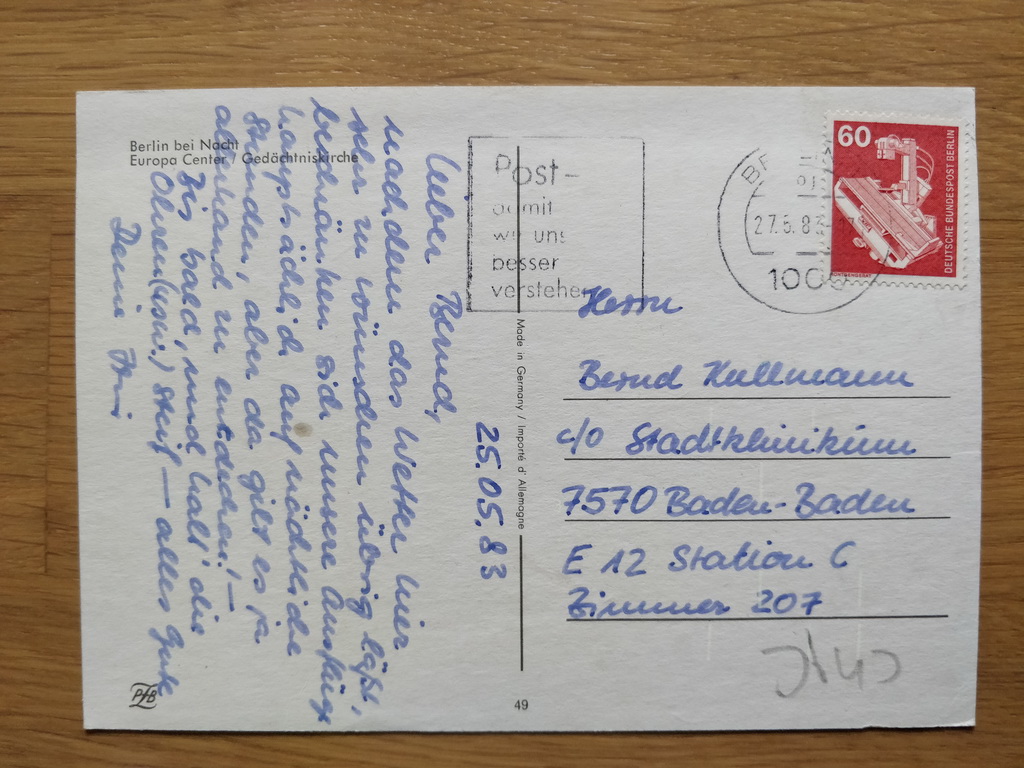 Berlin bei Nacht
Europa Center / Gedächtniskirche
25.05.83
Lieber Bernd,
nachdem das Wetter hier
sehr zu wünschen übrig läßt,
beschränken sich unsere Ausflüge
hauptsächlich auf nächtliche
Stunden, aber da gibt es ja
allerhand zu entdecken! –
Bis bald, und halt' die
Ohren (usw.) steif – alles Gute
Deine
Made in Germany / Importé d'Allemagne
49
PFB
Post-
damit
wir uns
besser
verstehen
27.5.83
1000
60
DEUTSCHE BUNDESPOST BERLIN
Herrn
Bernd Kullmann
c/o Stadtklinikum
7570 Baden-Baden
E 12 Station C
Zimmer 207